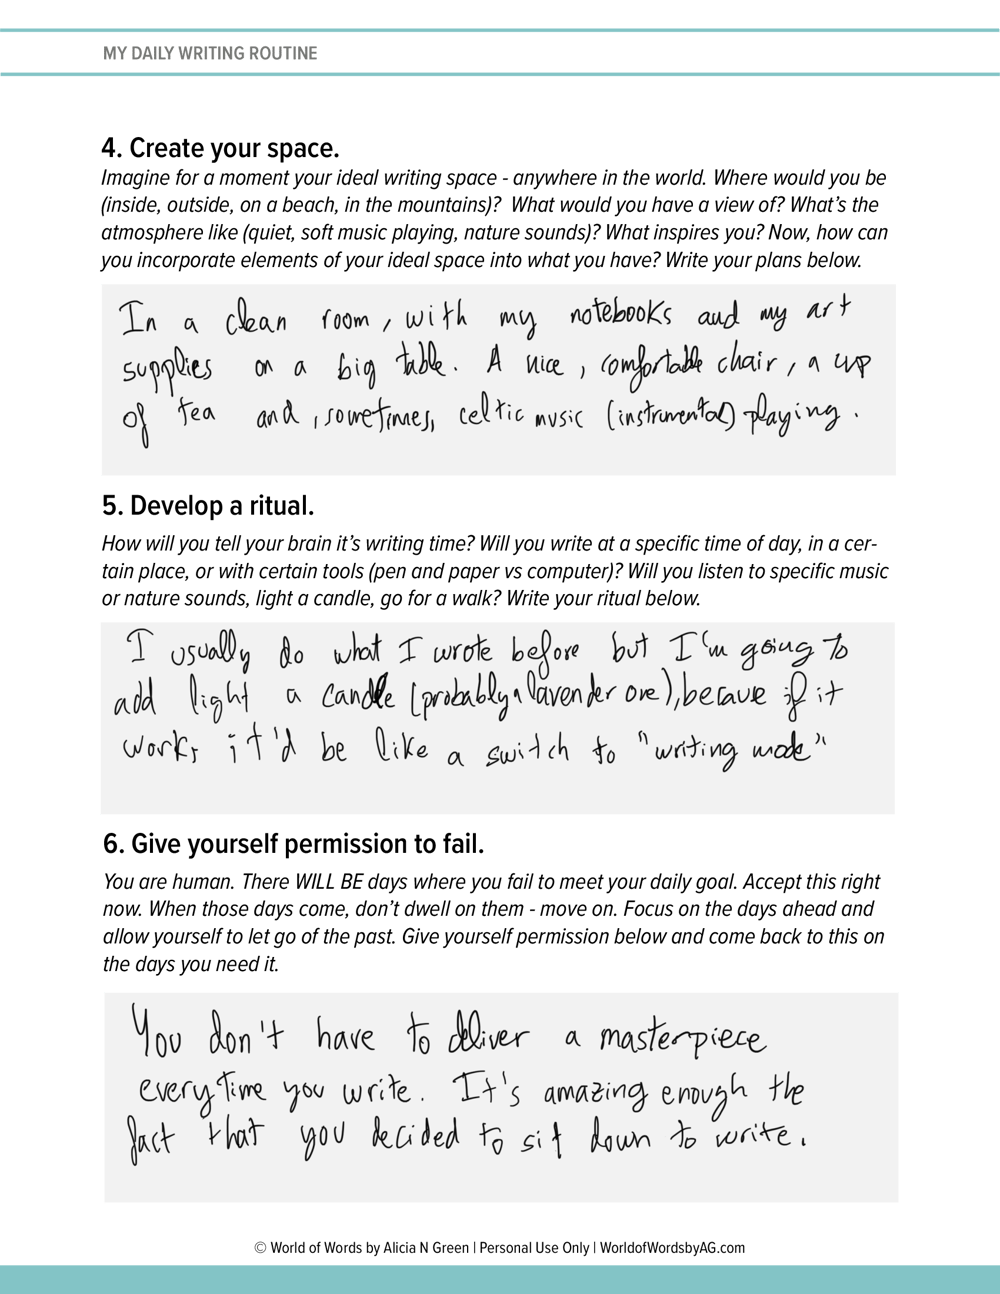 MY DAILY WRITING ROUTINE
4. Create your space.
Imagine for a moment your ideal writing space - anywhere in the world. Where would you be
(inside, outside, on a beach, in the mountains)?  What would you have a view of? What's the
atmosphere like (quiet, soft music playing, nature sounds)? What inspires you? Now, how can
you incorporate elements of your ideal space into what you have? Write your plans below.
In a clean room, with my notebooks and my art
supplies on a big table. A nice, comfortable chair, a cup
of tea and, sometimes, celtic music (instrumental) playing.
5. Develop a ritual.
How will you tell your brain it's writing time? Will you write at a specific time of day, in a cer-
tain place, or with certain tools (pen and paper vs computer)? Will you listen to specific music
or nature sounds, light a candle, go for a walk? Write your ritual below.
I usually do what I wrote before but I'm going to
add light a candle (probably a lavender one), because if it
works it'd be like a switch to "writing mode"
6. Give yourself permission to fail.
You are human. There WILL BE days where you fail to meet your daily goal. Accept this right
now. When those days come, don't dwell on them - move on. Focus on the days ahead and
allow yourself to let go of the past. Give yourself permission below and come back to this on
the days you need it.
You don't have to deliver a masterpiece
everytime you write. It's amazing enough the
fact that you decided to sit down to write.
© World of Words by Alicia N Green | Personal Use Only | WorldofWordsbyAG.com